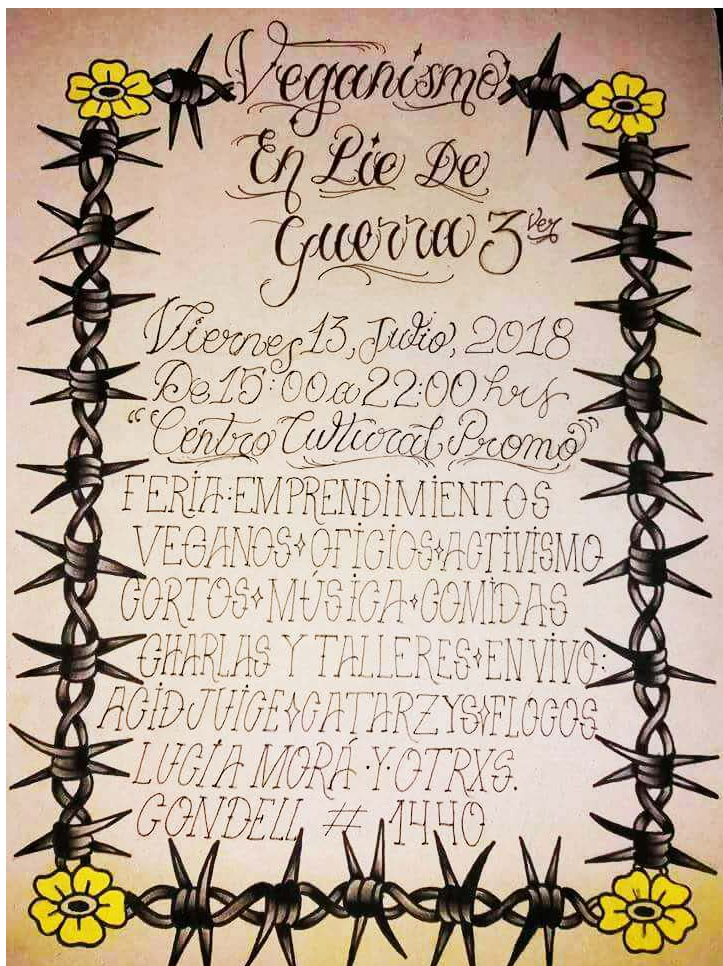 Veganismo
En Pie De
Guerra 3ver
Viernes 13, Julio, 2018
De 15:00 a 22:00 hrs
"Centro Cultural Promo"
FERIA: EMPRENDIMIENTOS
VEGANOS✦OFICIOS✦ACTIVISMO
CORTOS✦MÚSICA✦COMIDAS
CHARLAS Y TALLERES✦EN VIVO:
ACID JUICE✦CATARZYS✦FLOGOS
LUCÍA MORÁ·Y·OTRXS.
CONDELL # 1440